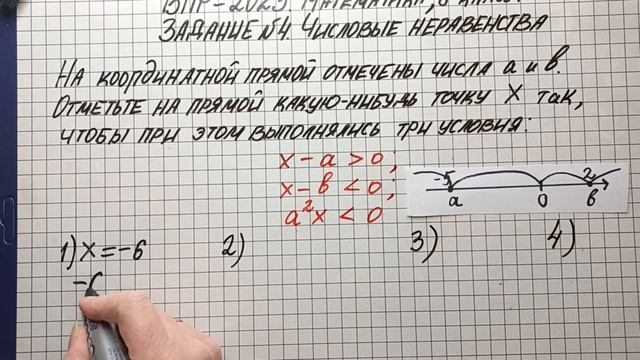 ВПР-2023. МАТЕМАТИКА, 8 КЛАСС.
ЗАДАНИЕ №4. ЧИСЛОВЫЕ НЕРАВЕНСТВА
НА КООРДИНАТНОЙ ПРЯМОЙ ОТМЕЧЕНЫ ЧИСЛА а и в.
ОТМЕТЬТЕ НА ПРЯМОЙ КАКУЮ-НИБУДЬ ТОЧКУ X ТАК,
ЧТОБЫ ПРИ ЭТОМ ВЫПОЛНЯЛИСЬ ТРИ УСЛОВИЯ:
x - a > 0;
x - в < 0;
a²x < 0
-5 2
a 0 в
1) x = -6 2) 3) 4)
-6